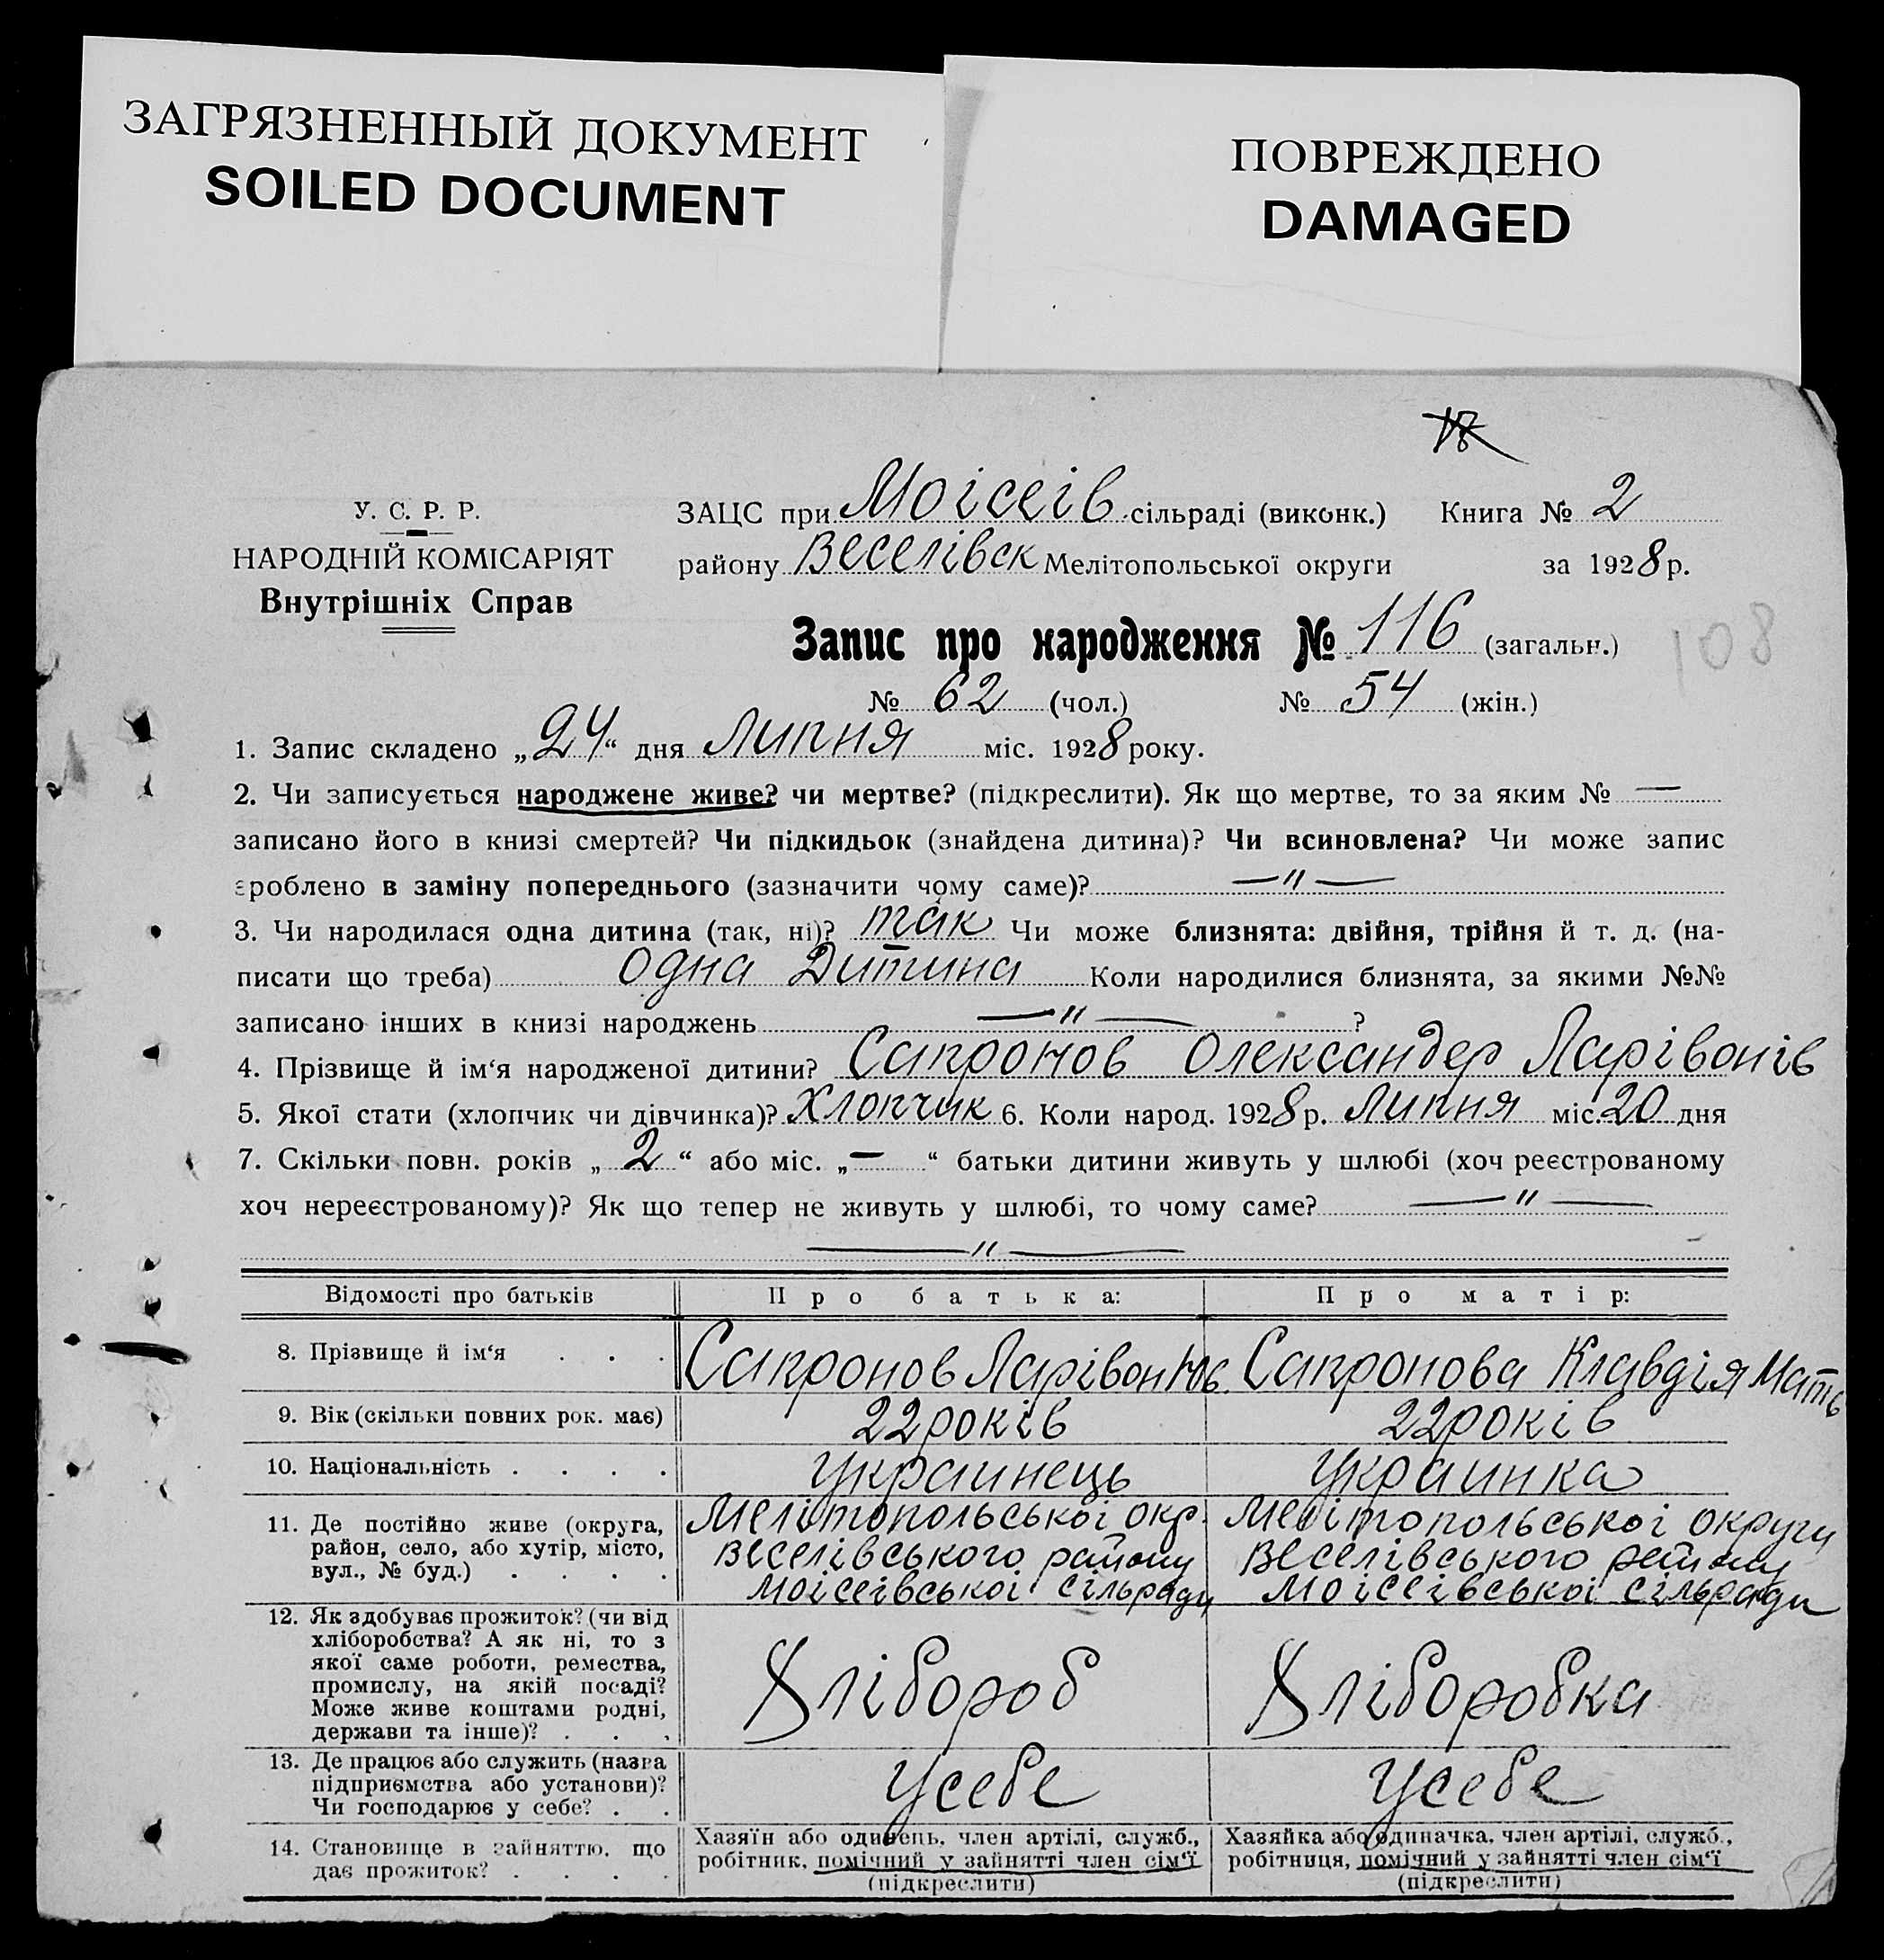 ЗАГРЯЗНЕННЫЙ ДОКУМЕНТ
SOILED DOCUMENT
ПОВРЕЖДЕНО
DAMAGED
У. С. Р. Р.
НАРОДНІЙ КОМІСАРІЯТ
Внутрішніх Справ
ЗАЦС при Моісеів сільраді (виконк.) Книга № 2
району Веселівск Мелітопольської округи за 1928 р.
Запис про народження № 116 (загальн.)
108
№ 62 (чол.) № 54 (жін.)
1. Запис складено „24“ дня Липня міс. 1928 року.
2. Чи записується народжене живе? чи мертве? (підкреслити). Як що мертве, то за яким № —
записано його в книзі смертей? Чи підкидьок (знайдена дитина)? Чи всиновлена? Чи може запис
зроблено в заміну попереднього (зазначити чому саме)? —〃—
3. Чи народилася одна дитина (так, ні)? так Чи може близнята: двійня, трійня й т. д. (на-
писати що треба) Одна Дитина Коли народилися близнята, за якими №№
записано інших в книзі народжень —〃— ?
4. Прізвище й ім‘я народженої дитини? Сапронов Олександер Ларівонів
5. Якої стати (хлопчик чи дівчинка)? Хлопчик 6. Коли народ. 1928 р. Липня міс. 20 дня
7. Скільки повн. років „2“ або міс. „—“ батьки дитини живуть у шлюбі (хоч реєстрованому
хоч нереєстрованому)? Як що тепер не живуть у шлюбі, то чому саме? —〃—
—〃—
Відомості про батьків Про батька: Про матір:
8. Прізвище й ім‘я . . . Сапронов Ларівон Сапронова Клавдія
9. Вік (скільки повних рок. має) 22 років 22 років
10. Національність . . . . Украинець Украинка
11. Де постійно живе (округа,
район, село, або хутір, місто,
вул., № буд.) . . . .
Мелітопольськоі окр.
Веселівського району
Моісеівськоі сільради
Мелітопольськоі округи
Веселівського району
Моісеівськоі сільради
12. Як здобуває прожиток? (чи від
хліборобства? А як ні, то з
якої саме роботи, ремества,
промислу, на якій посаді?
Може живе коштами родні,
держави та інше)? . . .
Хлібороб
Хліборобка
13. Де працює або служить (назва
підприємства або установи)?
Чи господарює у себе? . .
Усебе
Усебе
14. Становище в зайняттю, що
дає прожиток? . . . .
Хазяїн або одинець, член артілі, служб.,
робітник, помічний у зайнятті член сім‘ї
(підкреслити)
Хазяйка або одиначка, член артілі, служб.,
робітниця, помічний у зайнятті член сім‘ї
(підкреслити)